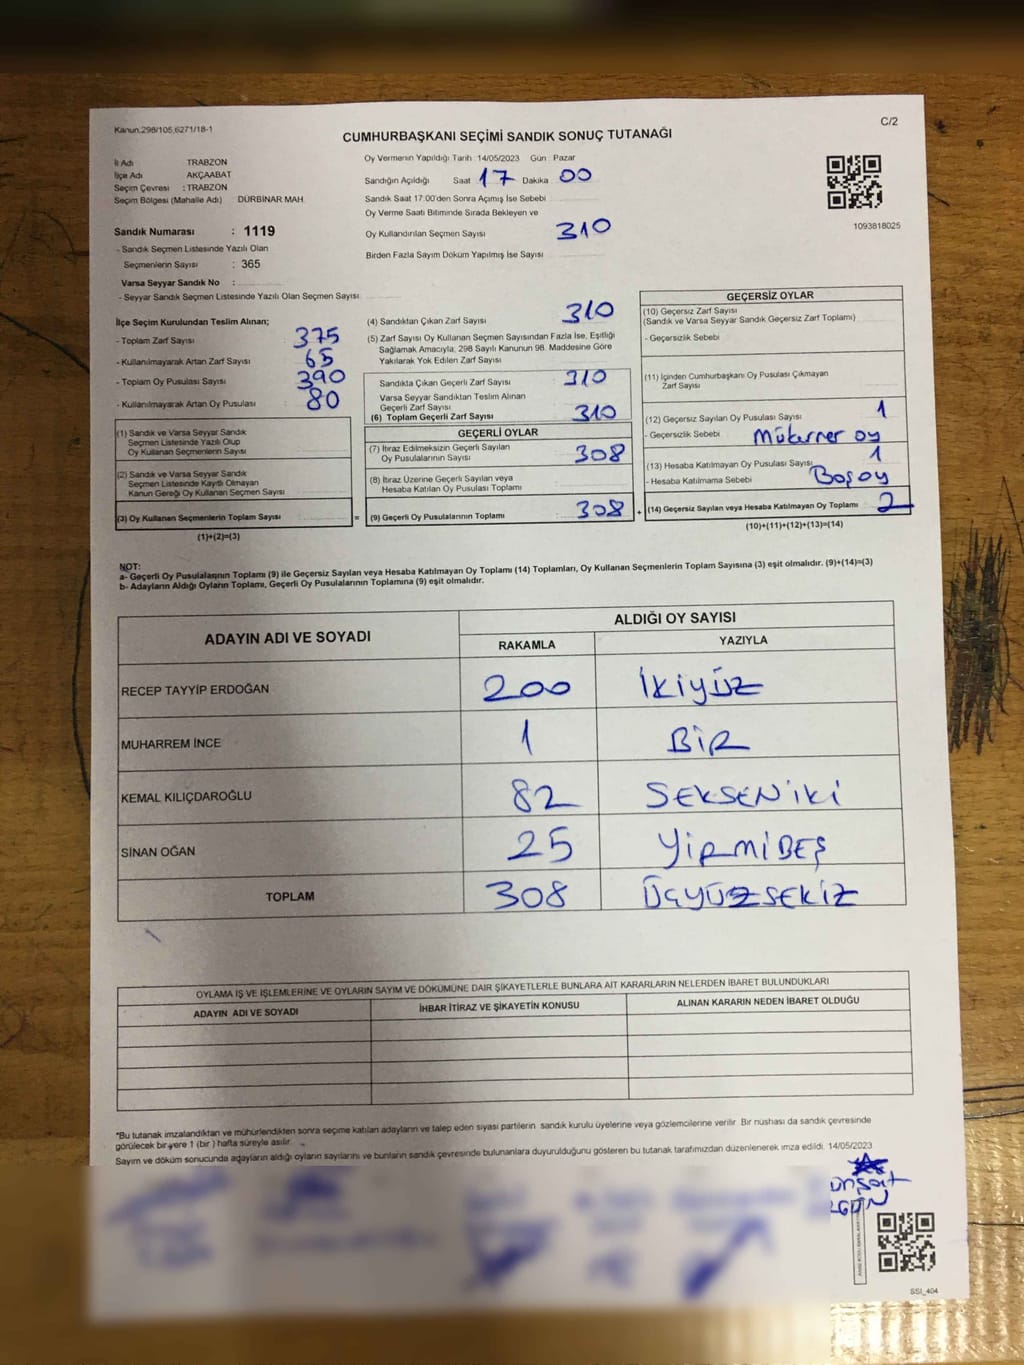 Kanun.298/105,6271/18-1
C/2
CUMHURBAŞKANI SEÇİMİ SANDIK SONUÇ TUTANAĞI
İl Adı TRABZON
İlçe Adı AKÇAABAT
Seçim Çevresi : TRABZON
Seçim Bölgesi (Mahalle Adı) DÜRBİNAR MAH.
Sandık Numarası : 1119
- Sandık Seçmen Listesinde Yazılı Olan
Seçmenlerin Sayısı : 365
Varsa Seyyar Sandık No :
- Seyyar Sandık Seçmen Listesinde Yazılı Olan Seçmen Sayısı
Oy Vermenin Yapıldığı Tarih : 14/05/2023 Gün : Pazar
Sandığın Açıldığı Saat 17 Dakika 00
Sandık Saat 17.00'den Sonra Açımış İse Sebebi
Oy Verme Saati Bitiminde Sırada Bekleyen ve
Oy Kullandırılan Seçmen Sayısı 310
Birden Fazla Sayım Döküm Yapılmış İse Sayısı
1093818025
İlçe Seçim Kurulundan Teslim Alınan;
- Toplam Zarf Sayısı 375
- Kullanılmayarak Artan Zarf Sayısı 65
- Toplam Oy Pusulası Sayısı 390
- Kullanılmayarak Artan Oy Pusulası 80
(1) Sandık ve Varsa Seyyar Sandık
Seçmen Listesinde Yazılı Olup
Oy Kullanan Seçmenlerin Sayısı
(2) Sandık ve Varsa Seyyar Sandık
Seçmen Listesinde Kayıtlı Olmayan
Kanun Gereği Oy Kullanan Seçmen Sayısı
(3) Oy Kullanan Seçmenlerin Toplam Sayısı =
(1)+(2)=(3)
(4) Sandıktan Çıkan Zarf Sayısı 310
(5) Zarf Sayısı Oy Kullanan Seçmen Sayısından Fazla İse, Eşitliği
Sağlamak Amacıyla, 298 Sayılı Kanunun 98. Maddesine Göre
Yakılarak Yok Edilen Zarf Sayısı
Sandıkta Çıkan Geçerli Zarf Sayısı 310
Varsa Seyyar Sandıktan Teslim Alınan
Geçerli Zarf Sayısı
(6) Toplam Geçerli Zarf Sayısı 310
GEÇERLİ OYLAR
(7) İtiraz Edilmeksizin Geçerli Sayılan
Oy Pusulalarının Sayısı 308
(8) İtiraz Üzerine Geçerli Sayılan veya
Hesaba Katılan Oy Pusulası Toplamı
(9) Geçerli Oy Pusulalarının Toplamı 308 +
GEÇERSİZ OYLAR
(10) Geçersiz Zarf Sayısı
(Sandık ve Varsa Seyyar Sandık Geçersiz Zarf Toplamı)
- Geçersizlik Sebebi
(11) İçinden Cumhurbaşkanı Oy Pusulası Çıkmayan
Zarf Sayısı
(12) Geçersiz Sayılan Oy Pusulası Sayısı 1
- Geçersizlik Sebebi Mükerrer oy
(13) Hesaba Katılmayan Oy Pusulası Sayısı 1
- Hesaba Katılmama Sebebi Boş oy
(14) Geçersiz Sayılan veya Hesaba Katılmayan Oy Toplamı 2
(10)+(11)+(12)+(13)=(14)
NOT:
a- Geçerli Oy Pusulalarının Toplamı (9) ile Geçersiz Sayılan veya Hesaba Katılmayan Oy Toplamı (14) Toplamları, Oy Kullanan Seçmenlerin Toplam Sayısına (3) eşit olmalıdır. (9)+(14)=(3)
b- Adayların Aldığı Oyların Toplamı, Geçerli Oy Pusulalarının Toplamına (9) eşit olmalıdır.
ADAYIN ADI VE SOYADI ALDIĞI OY SAYISI
RAKAMLA YAZIYLA
RECEP TAYYİP ERDOĞAN 200 İKİYÜZ
MUHARREM İNCE 1 BİR
KEMAL KILIÇDAROĞLU 82 SEKSENİKİ
SİNAN OĞAN 25 YİRMİBEŞ
TOPLAM 308 ÜÇYÜZSEKİZ
OYLAMA İŞ VE İŞLEMLERİNE VE OYLARIN SAYIM VE DÖKÜMÜNE DAİR ŞİKAYETLERLE BUNLARA AİT KARARLARIN NELERDEN İBARET BULUNDUKLARI
ADAYIN ADI VE SOYADI İHBAR İTİRAZ VE ŞİKAYETİN KONUSU ALINAN KARARIN NEDEN İBARET OLDUĞU
*Bu tutanak imzalandıktan ve mühürlendikten sonra seçime katılan adayların ve talep eden siyasi partilerin sandık kurulu üyelerine veya gözlemcilerine verilir. Bir nushası da sandık çevresinde
görülecek bir yere 1 (bir) hafta süreyle asılır.
Sayım ve döküm sonucunda adayların aldığı oyların sayılarını ve bunların sandık çevresinde bulunanlara duyurulduğunu gösteren bu tutanak tarafımızdan düzenlenerek imza edildi. 14/05/2023
SSI_404